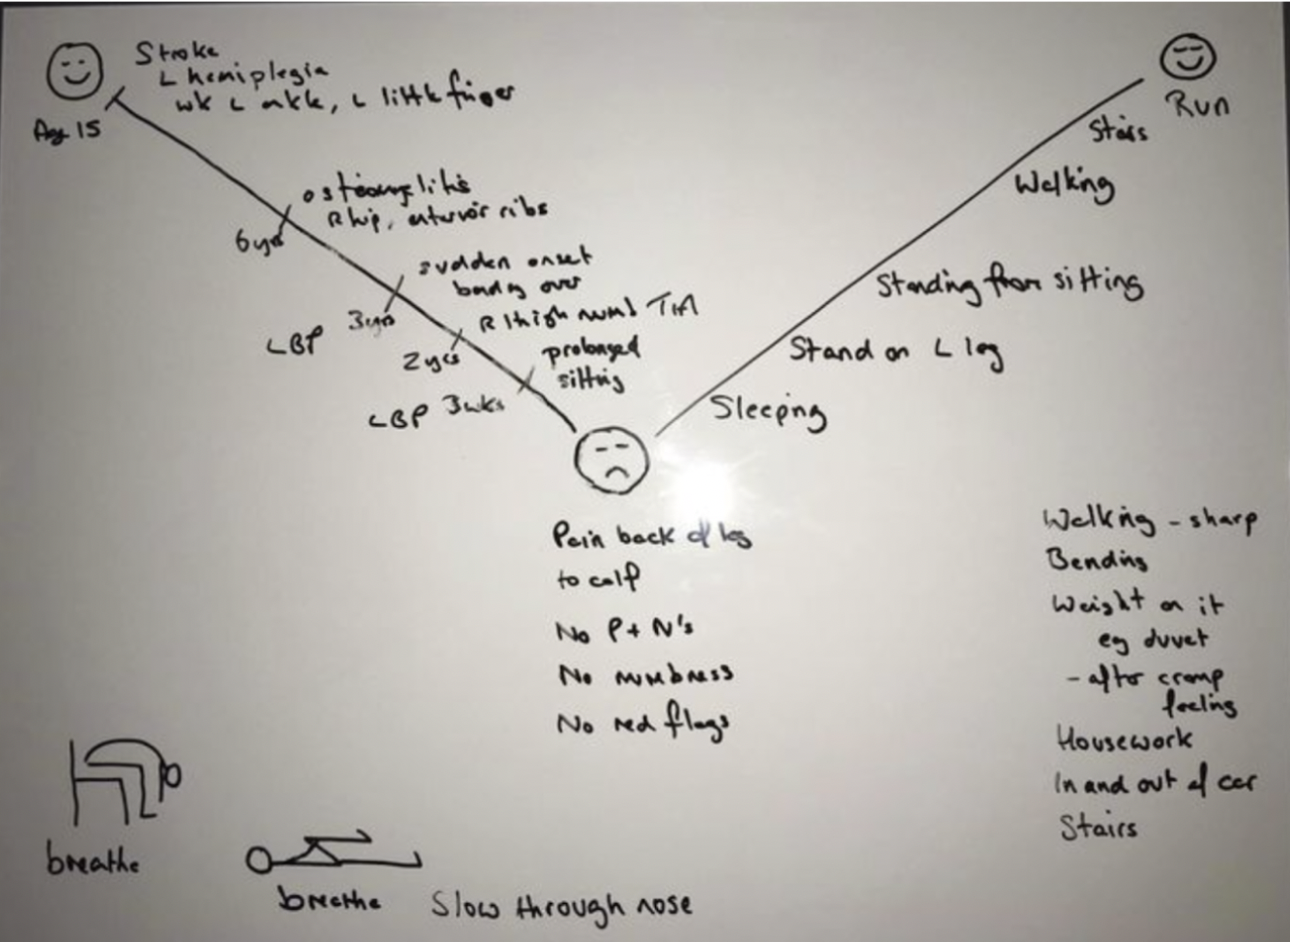 Stroke
L hemiplegia
wk L ankle, L little finger
Age 15
6yrs
R hip, anterior ribs
sudden onset
bending over
LBP 3yrs
R thigh numb TIA
2yrs
prolonged
sitting
LBP 3wks
Run
Stairs
Walking
Standing from sitting
Stand on L leg
Sleeping
Pain back of leg
to calf
No P+N's
No numbness
No red flags
Walking - sharp
Bending
Weight on it
eg duvet
- after cramp
feeling
Housework
In and out of car
Stairs
breathe
breathe Slow through nose